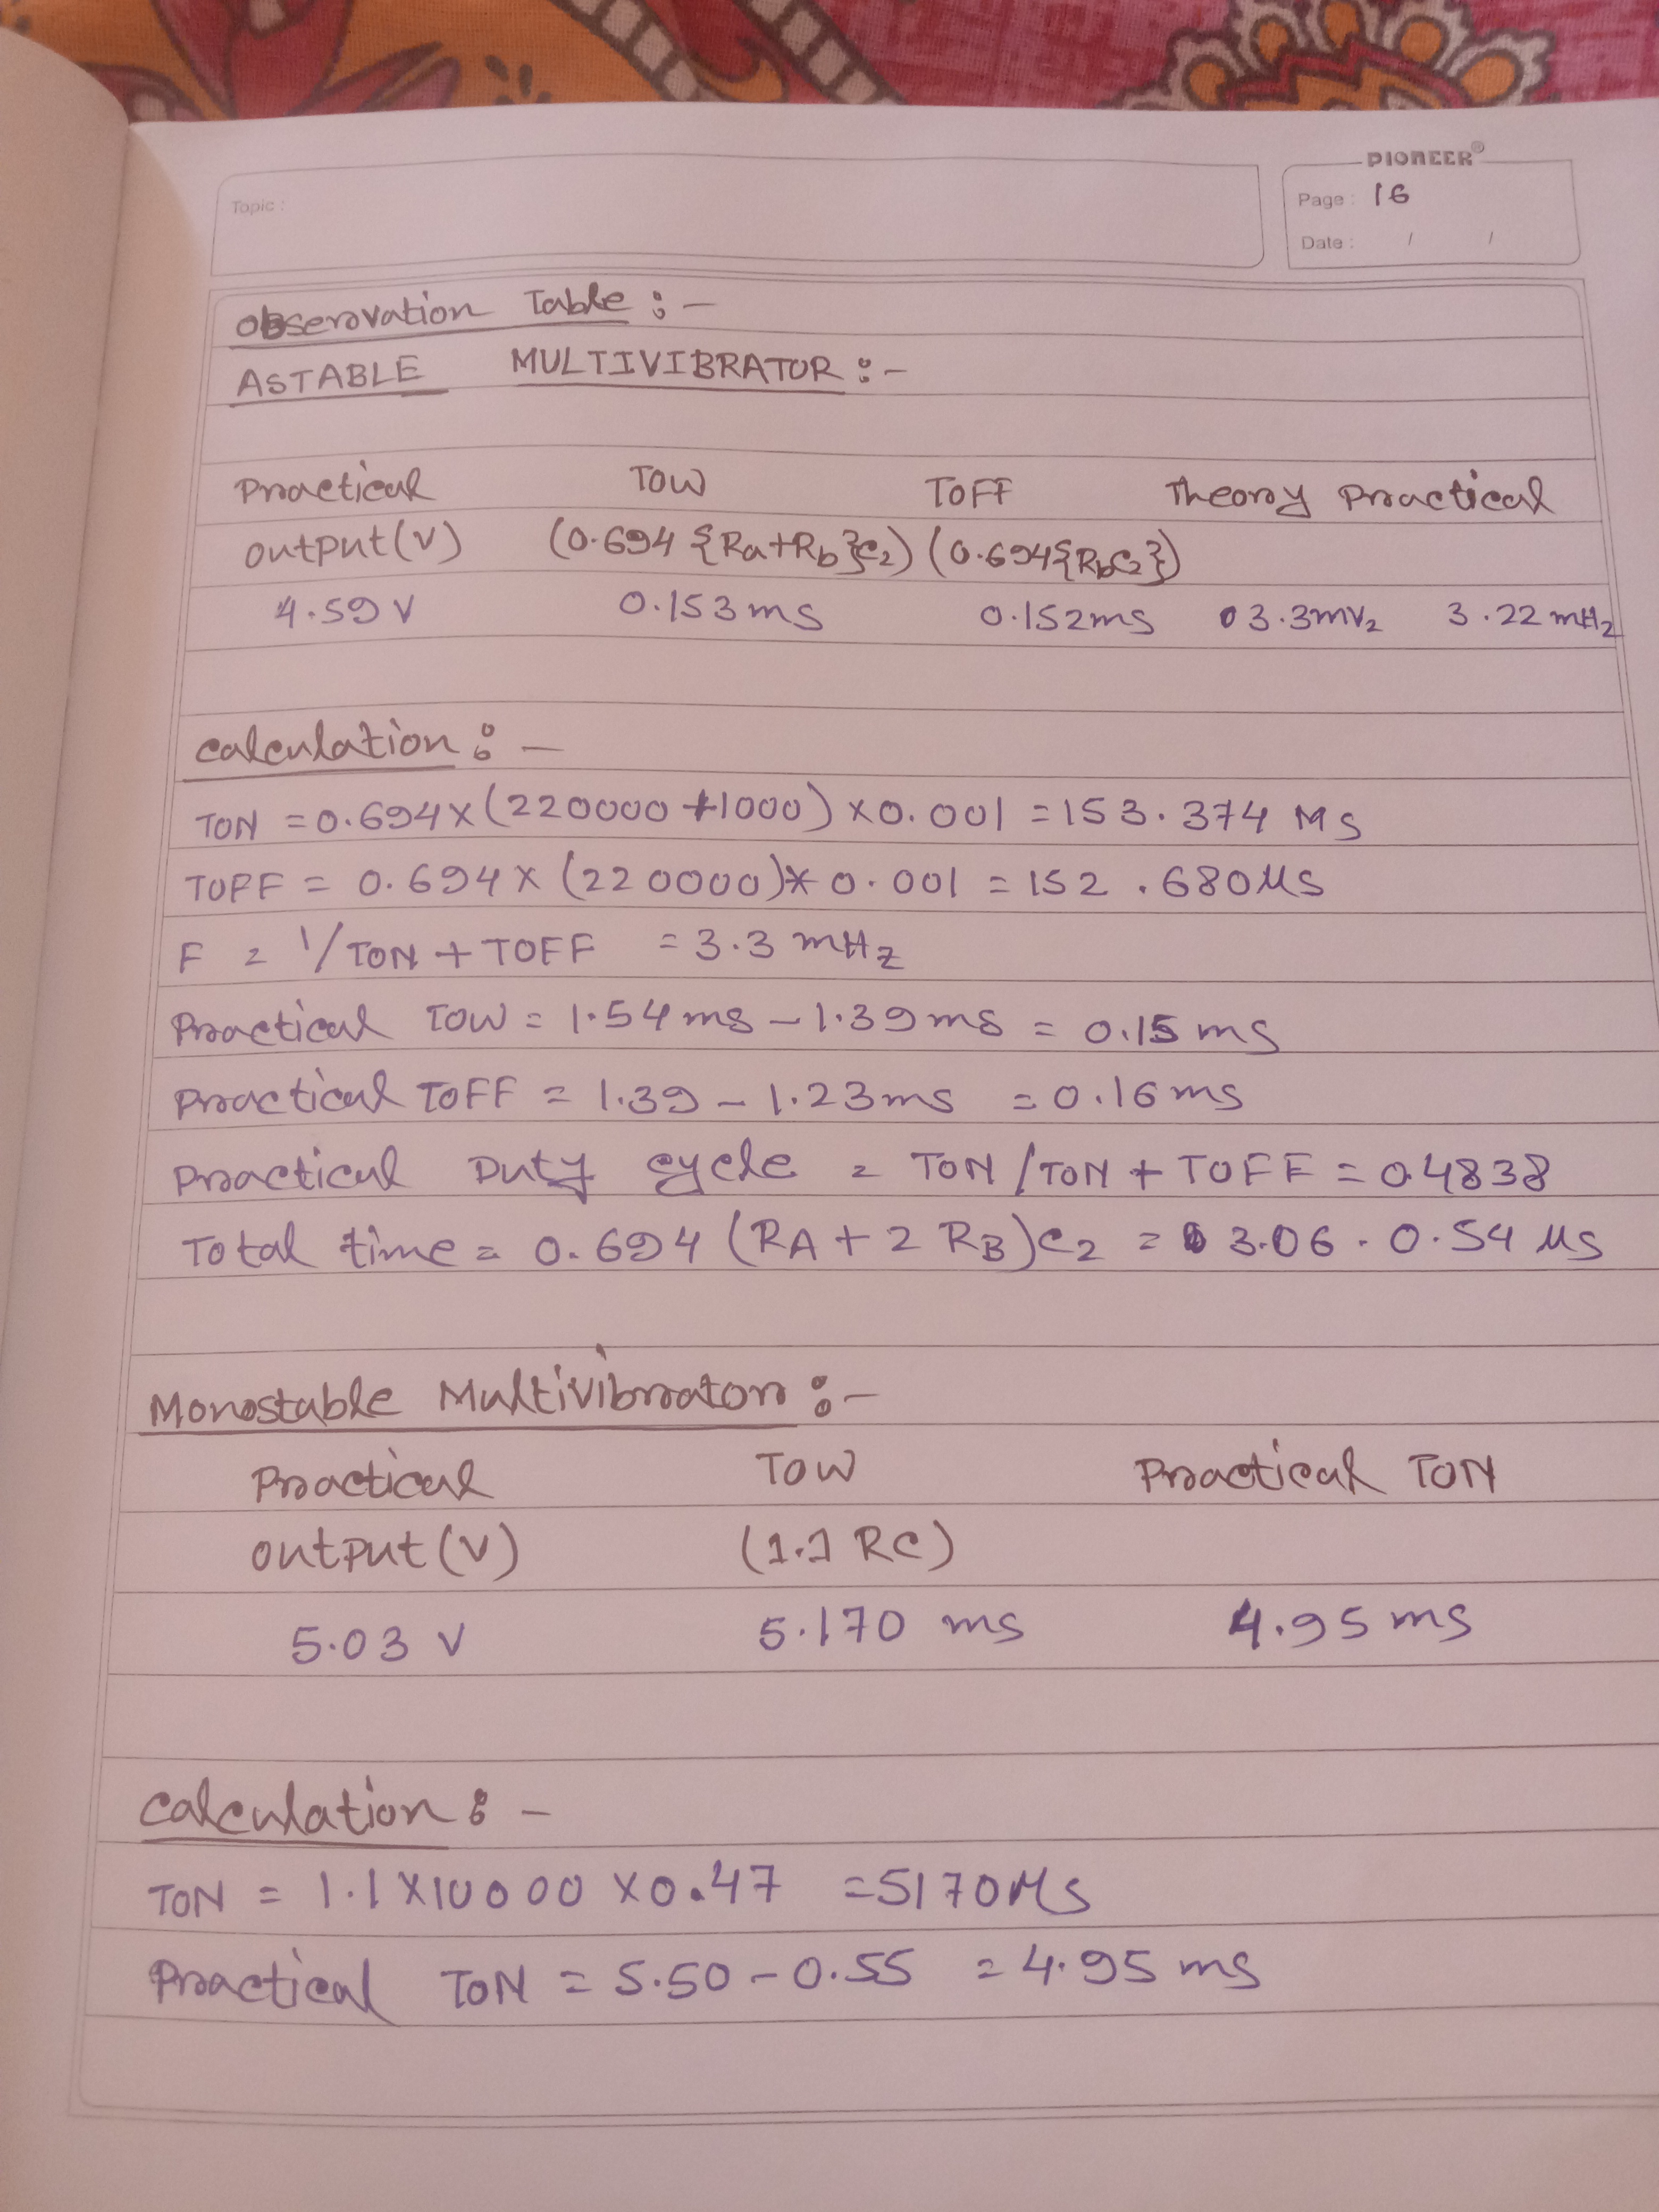 PIONEER®
Topic :
Page : 16
Date : / /
Observation Table :-
ASTABLE MULTIVIBRATOR :-
Practical TOW TOFF Theory Practical
output(V) (0.694 {Ra+Rb}C2) (0.694{RbC2})
4.59 V 0.153ms 0.152ms 03.3mV2 3.22 mHz
calculation :-
TON = 0.694x(220000+1000) x0.001 = 153.374 MS
TOFF = 0.694 x (220000)* 0.001 = 152.680µs
F = 1/TON + TOFF = 3.3 mHz
Practical TOW = 1.54 ms - 1.39ms = 0.15 ms
Practical TOFF = 1.39 - 1.23ms = 0.16ms
Practical Duty cycle = TON/TON + TOFF = 0.4838
Total time = 0.694 (RA + 2 RB)C2 = 3.06.0.54 µs
Monostable Multivibrator :-
Practical TOW Practical TON
output(V) (1.1 RC)
5.03 V 5.170 ms 4.95 ms
calculation :-
TON = 1.1X10000 X0.47 =5170Ms
Practical TON = 5.50-0.55 = 4.95 ms